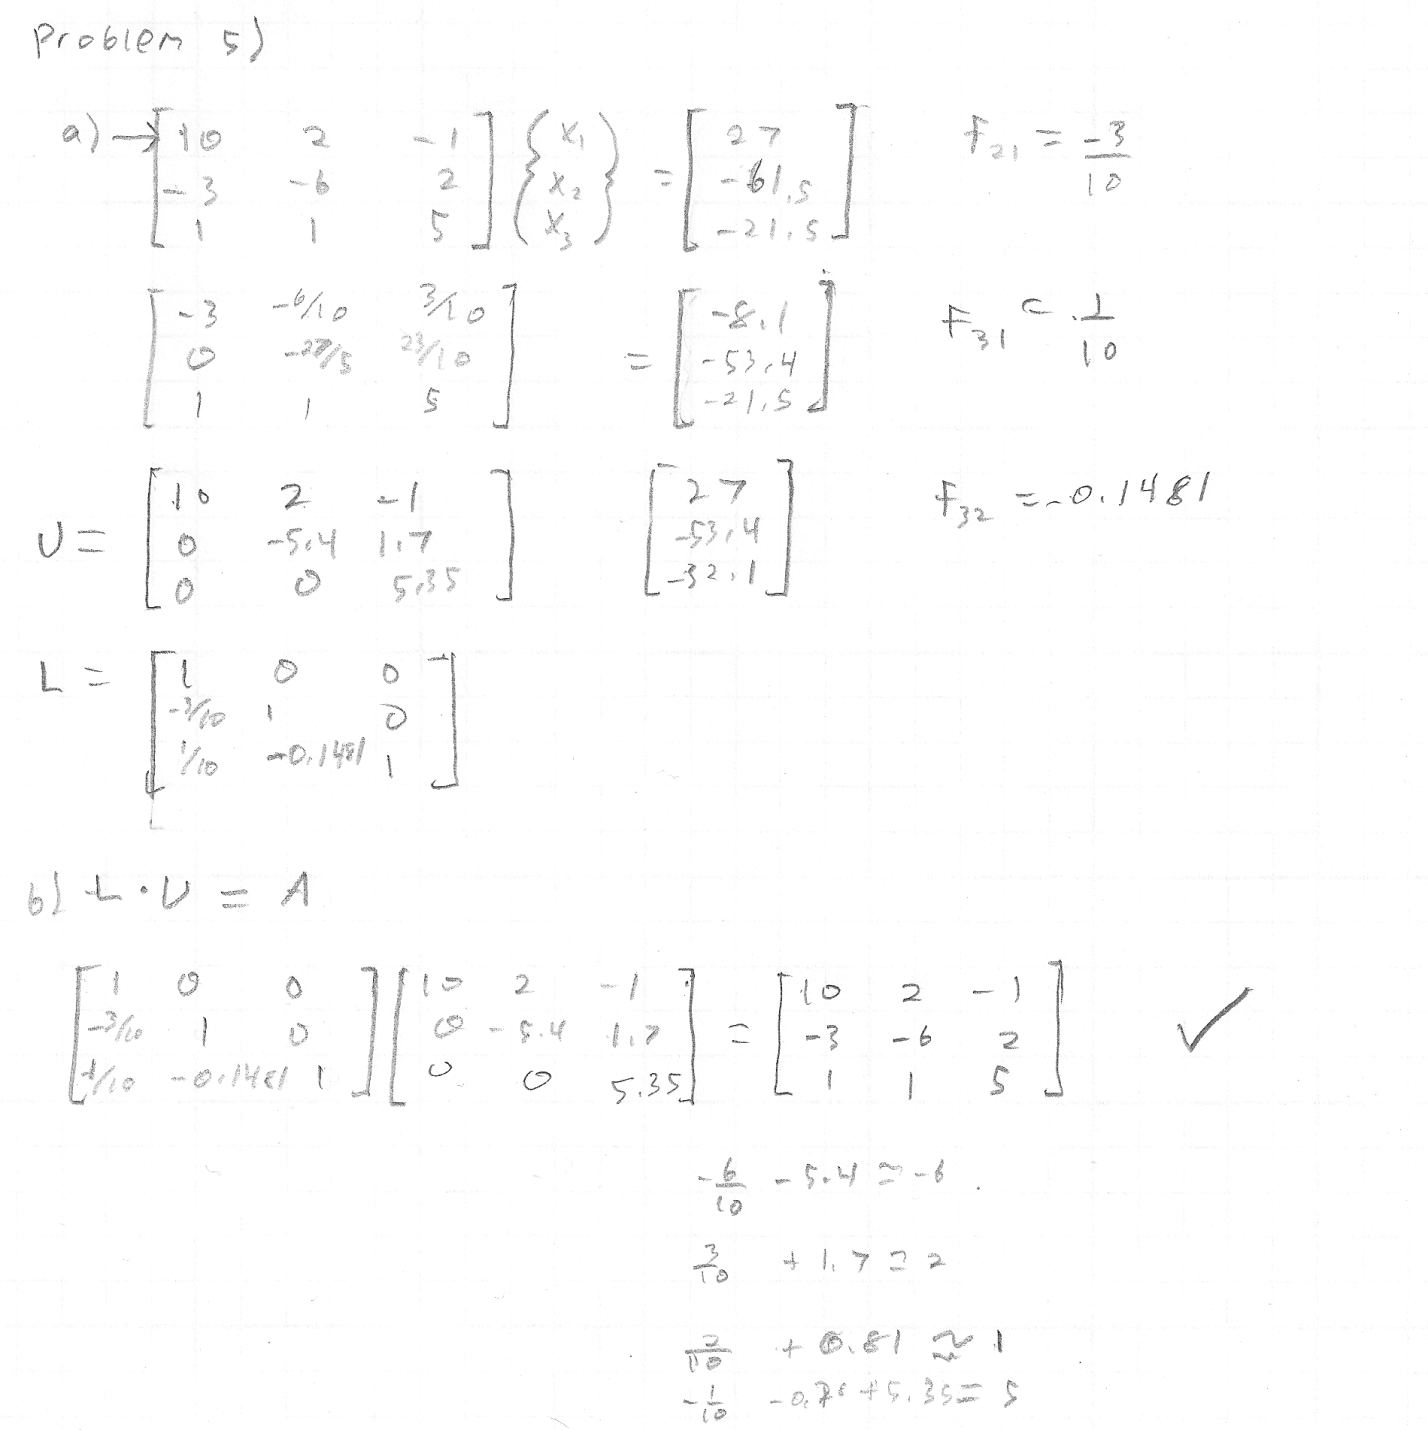 Problem 5)
a) → [10 2 -1; -3 -6 2; 1 1 5] {x₁; x₂; x₃} = [27; -61.5; -21.5] f₂₁ = -3/10
[-3 -6/10 3/10; 0 -27/5 23/10; 1 1 5] = [-8.1; -53.4; -21.5] f₃₁ = 1/10
U = [10 2 -1; 0 -5.4 1.7; 0 0 5.35] [27; -53.4; -32.1] f₃₂ = -0.1481
L = [1 0 0; -3/10 1 0; 1/10 -0.1481 1]
b) L · U = A
[1 0 0; -3/10 1 0; 1/10 -0.1481 1] [10 2 -1; 0 -5.4 1.7; 0 0 5.35] = [10 2 -1; -3 -6 2; 1 1 5] ✓
-6/10 - 5.4 = -6
3/10 + 1.7 = 2
2/10 + 0.81 ≈ 1
-1/10 + 5.35 = 5